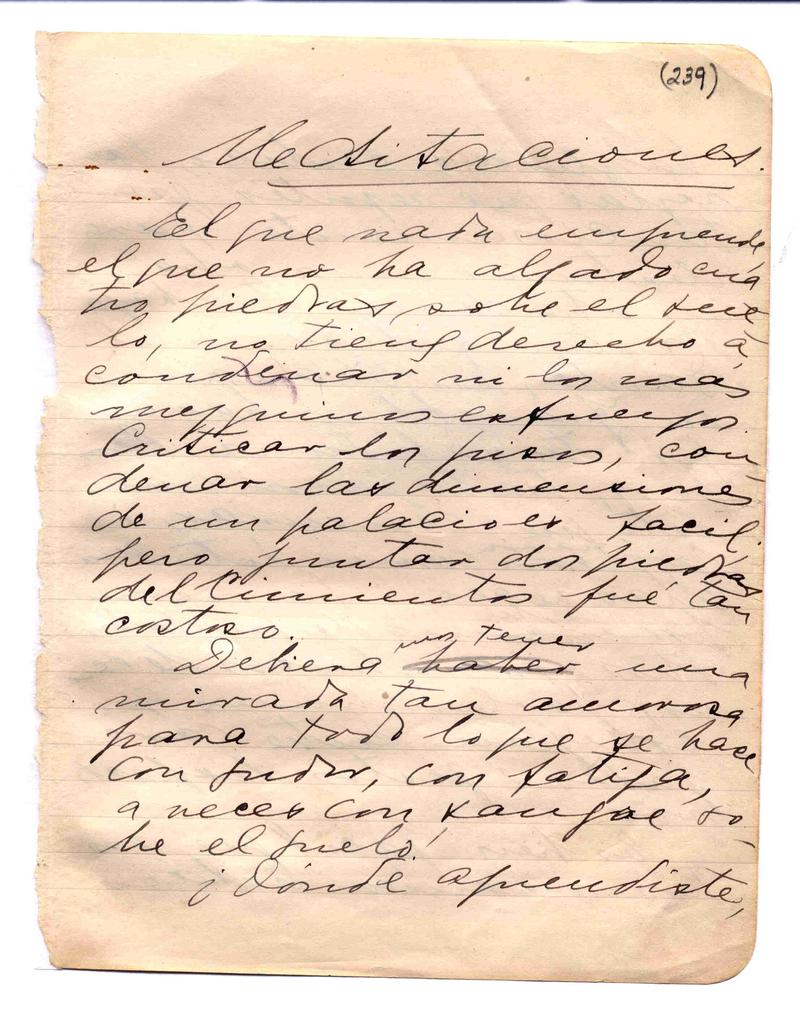 (239)
Meditaciones.
El que nada emprende,
el que no ha alzado cua
tro piedras sobre el sue
lo, no tiene derecho á
condenar ni los más
mezquinos esfuerzos.
Criticar los pisos, con-
denar las dimensiones
de un palacio es facil,
pero juntar dos piedras
del Cimientos fué tan
costoso.
mos tener
Debiera haber una
mirada tan amorosa
para todo lo que se hace
con sudor, con fatiga,
a veces con sangre so-
bre el suelo!
¿Dónde aprendiste,